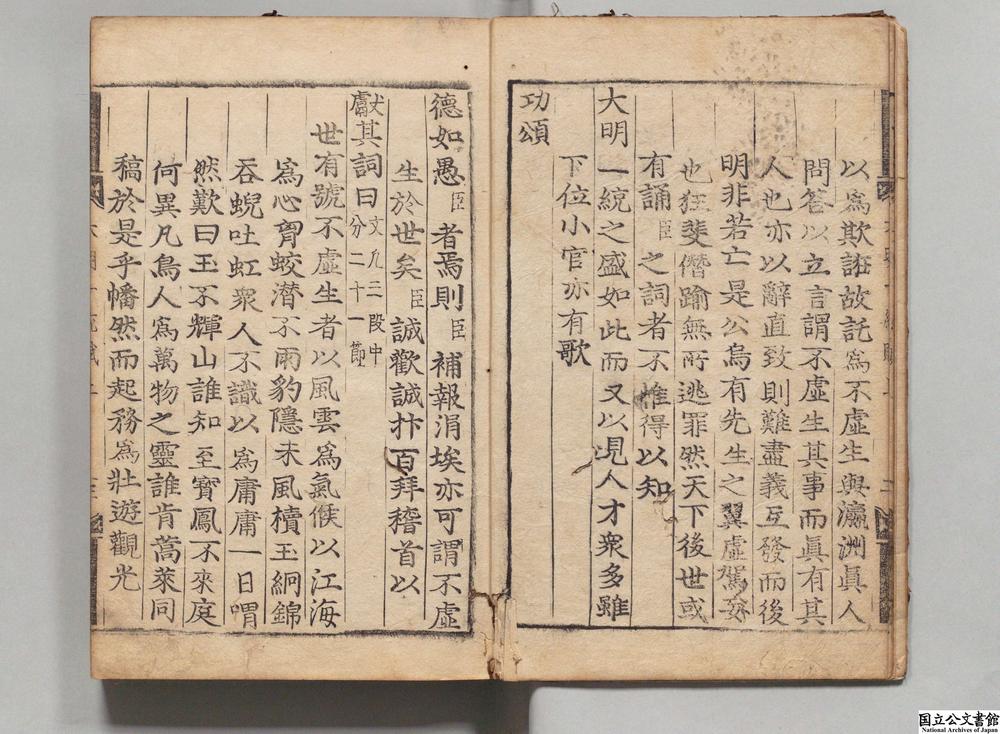 以爲欺誑故託爲不虛生與瀛洲眞人
問答以立言謂不虛生其事而眞有其
人也亦以辭直致則難盡義互發而後
明非若亡是公烏有先生之翼虛駕妄
也狂斐僭踰無所逃罪然天下後世或
有誦臣之詞者不惟得以知
大明一統之盛如此而又以見人才衆多雖
下位小官亦有歌
功頌
德如愚臣者焉則臣補報涓埃亦可謂不虛
生於世矣臣誠歡誠抃百拜稽首以
獻其詞曰文凡三段中分二十一節
世有號不虛生者以風雲爲氣候以江海
爲心胷蛟潜不雨豹隱未風櫝玉絅錦
吞蜺吐虹衆人不識以爲庸庸一日喟
然歎曰玉不輝山誰知至寶鳳不來庭
何異凡鳥人爲萬物之靈誰肯蒿萊同
稿於是乎幡然而起務爲壯遊觀光
国立公文書館
National Archives of Japan